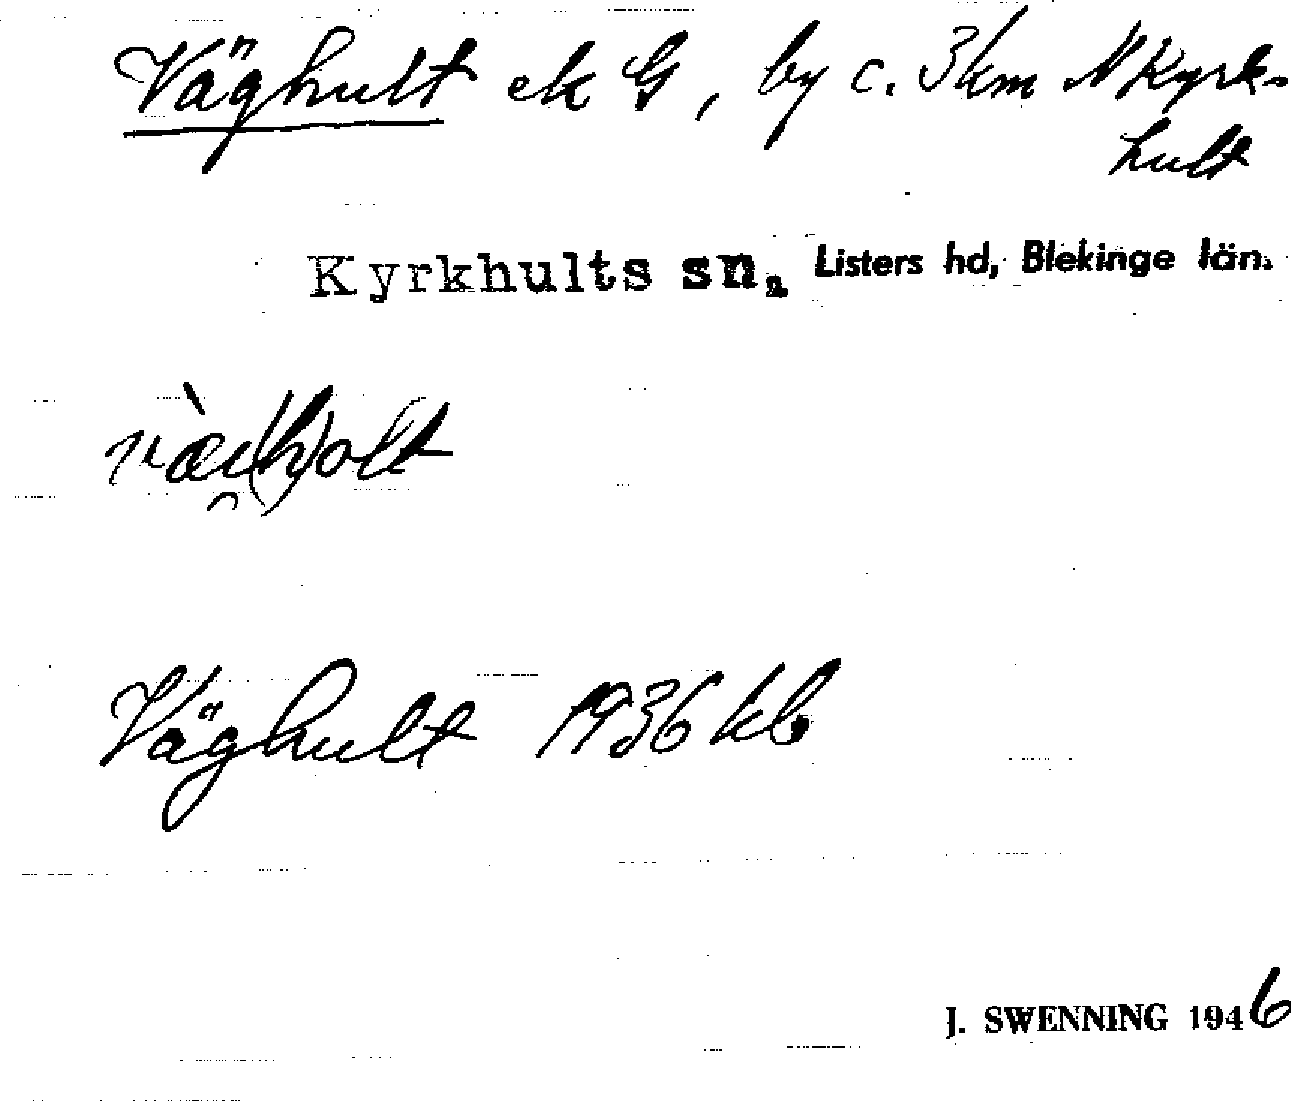 Väghult ek G, by c. 3km N Kyrk-
hult
Kyrkhults sn. Listers hd, Blekinge län.
væ̀i̯(h)olt
Väghult 1936 kb
J. SWENNING 1946